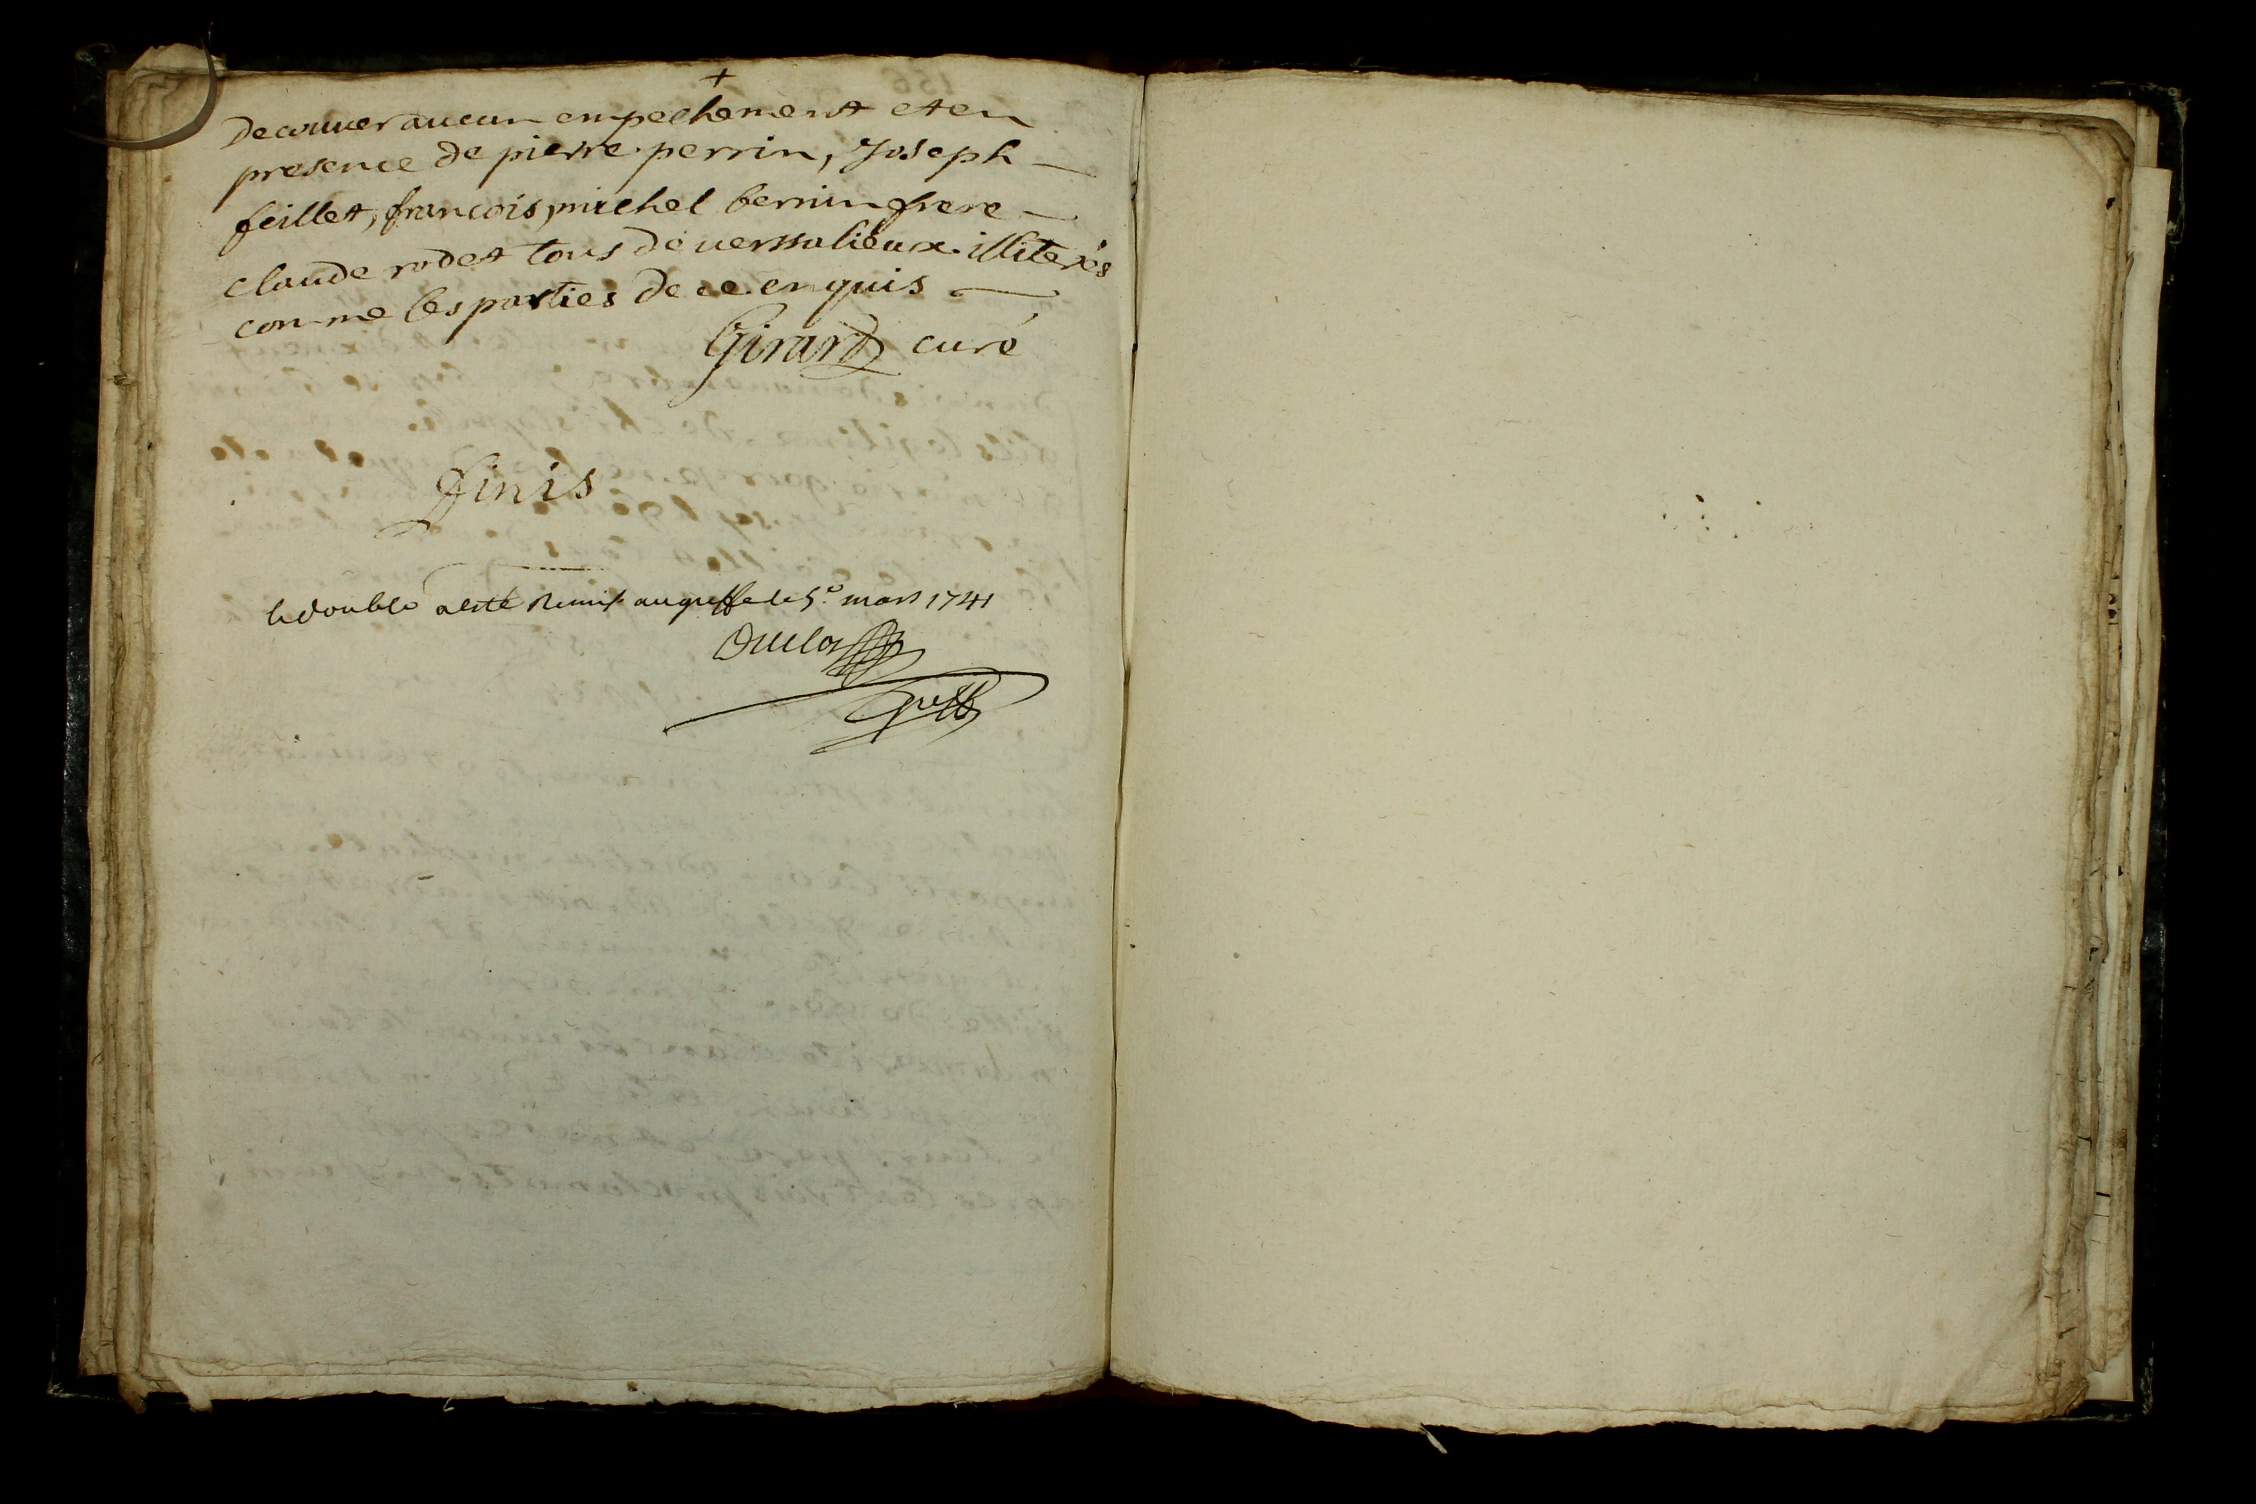 +
decouver aucun empechement et en
presence de pierre perrin, Joseph
feillet, francois, michel berrin frere
claude rodet tous de verssalieux illiterés
comme les parties de ce enquis
Girard curé
finis
le double a esté Remis au greffe le 5e mars 1741
Duclos
Greff